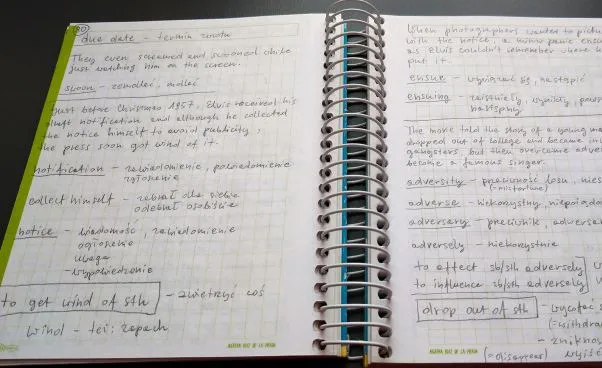 due date – termin zwrotu
They even screamed and swooned while
just watching him on the screen.
swoon – zemdleć, mdleć
Just before Christmas 1957, Elvis received his
draft notification and although he collected
the notice himself to avoid publicity,
the press soon got wind of it.
notification – zawiadomienie, powiadomienie
zgłoszenie
collect himself – zebrał dla siebie
odebrał osobiście
notice – wiadomość, zawiadomienie
ogłoszenie
uwaga
- wypowiedzenie
to get wind of sth – zwietrzyć coś
wind – też: zapach
AGATHA RUIZ DE LA PRADA
When photographers wanted to
with the notice, a minor panic
as Elvis couldn't remember where
put it.
ensue – wywiązać się, nastąpić
ensuing –
następny
The movie told the story of a young
dropped out of college and became
gangsters, but then overcame
become a famous singer.
adversity – przeciwność losu,
(=misfortune)
adverse – niekorzystny,
adversary – przeciwnik,
adversely – niekorzystnie
to affect sb/sth adversely
to influence sb/sth adversely
drop out of sth
wycofać
(=withdraw
- zniknąć
(=disappear) wyjść
AGATHA RUIZ DE LA PRADA